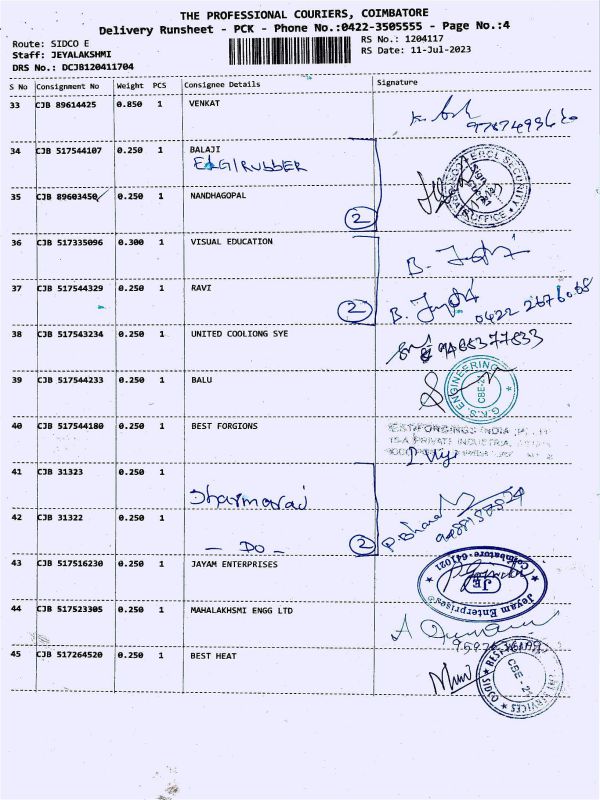 THE PROFESSIONAL COURIERS, COIMBATORE
Delivery Runsheet - PCK - Phone No.:0422-3505555 - Page No.:4
Route: SIDCO E
RS No.: 1204117
Staff: JEYALAKSHMI
RS Date: 11-Jul-2023
DRS No.: DCJB120411704
S No Consignment No Weight PCS Consignee Details Signature
33 CJB 89614425 0.850 1 VENKAT
34 CJB 517544107 0.250 1 BALAJI
ELGI RUBBER
35 CJB 89603450 0.250 1 NANDHAGOPAL
2
36 CJB 517335096 0.300 1 VISUAL EDUCATION
37 CJB 517544329 0.250 1 RAVI
2 0422 2676068
38 CJB 517543234 0.250 1 UNITED COOLIONG SYE
9485377833
39 CJB 517544233 0.250 1 BALU
G.K.S. ENGINEERING
CBE-21
40 CJB 517544180 0.250 1 BEST FORGIONS
41 CJB 31323 0.250 1
Dharmaraj
42 CJB 31322 0.250 1
- DO - 2
43 CJB 517516230 1 0.250 JAYAM ENTERPRISES
Coimbatore-641021
JE
Jeyam Enterprises
44 CJB 517523305 0.250 1 MAHALAKHSMI ENGG LTD
45 CJB 517264520 0.250 1 BEST HEAT
CBE - 21